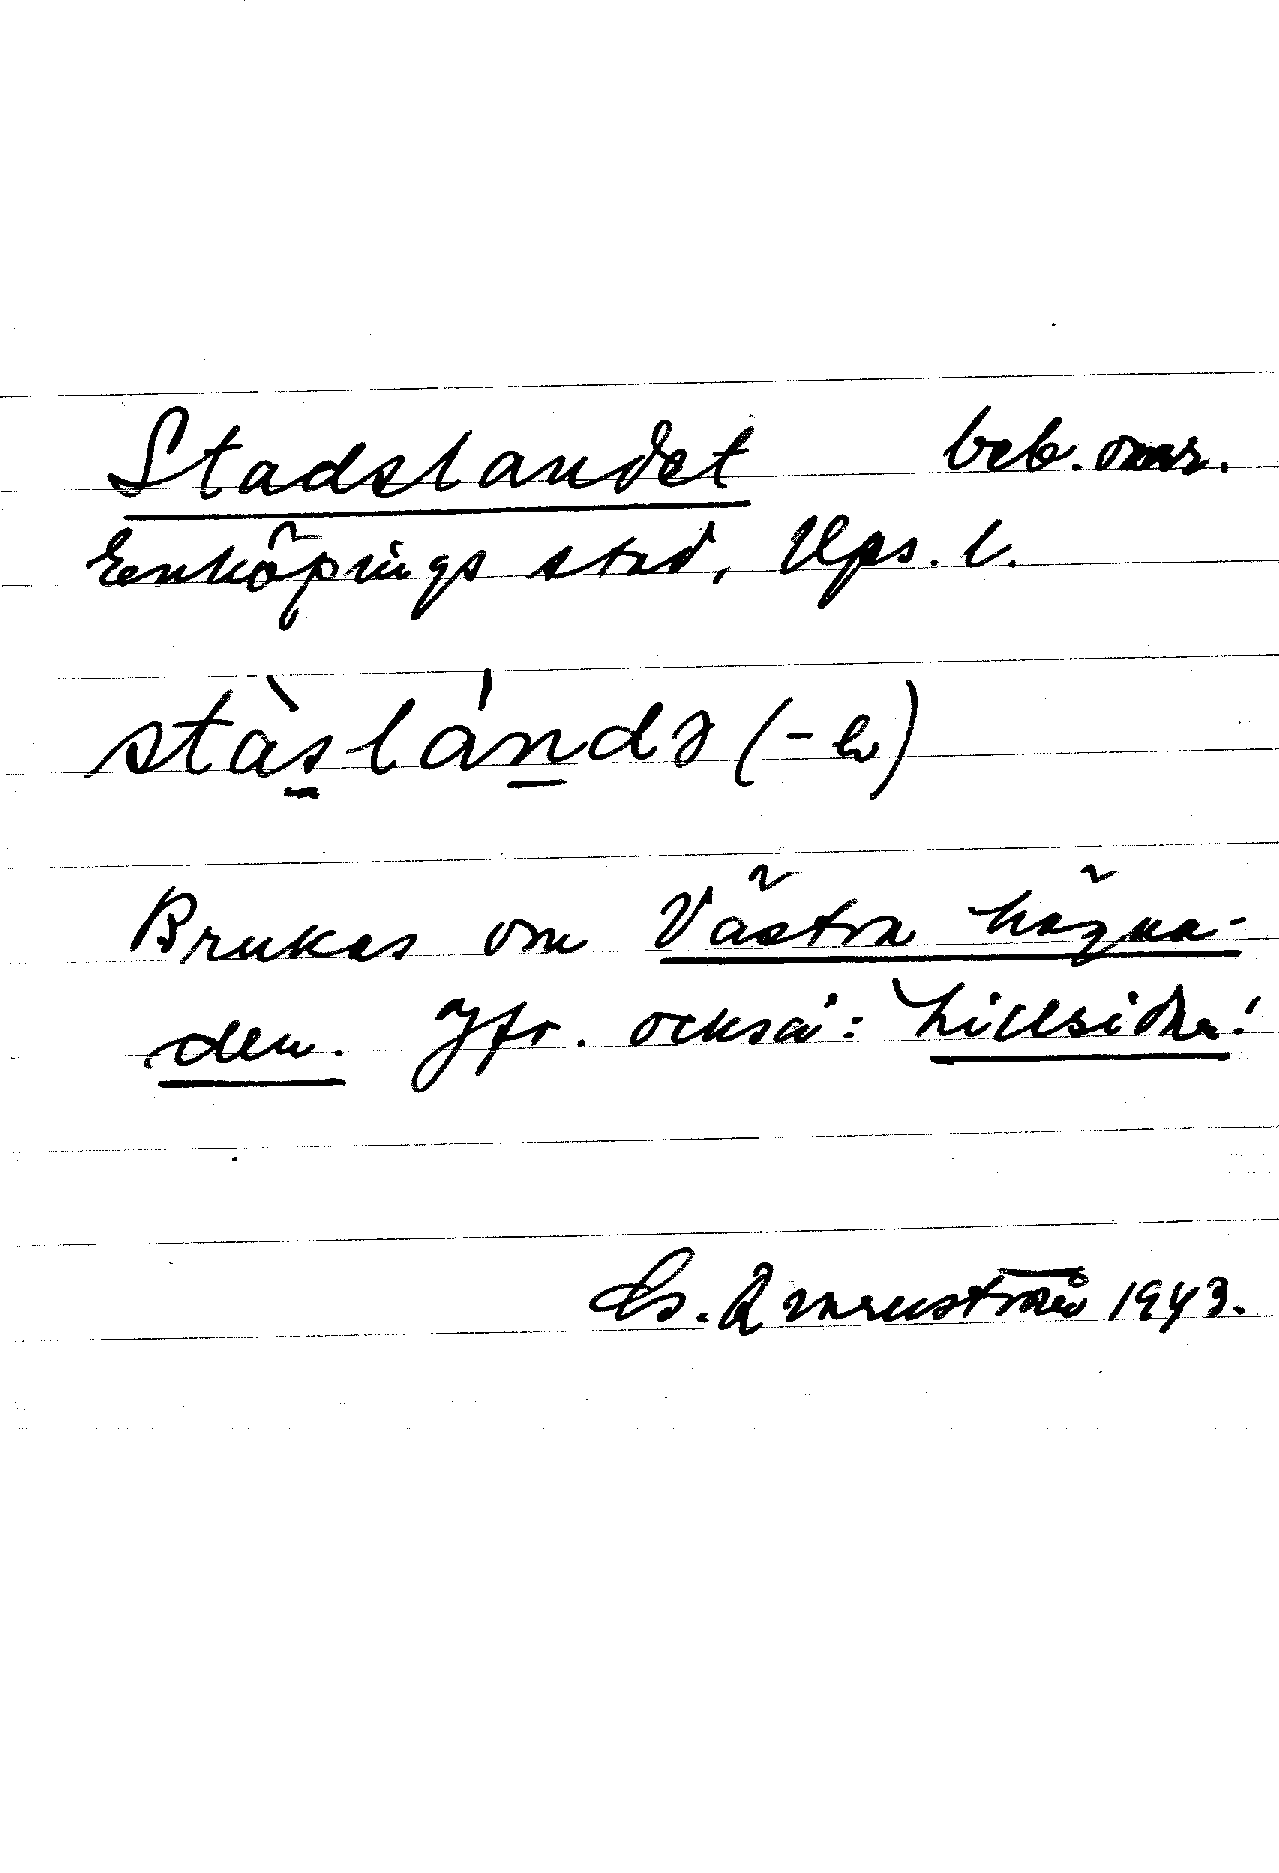 Stadslandet beb. omr.
Enköpings stad, Ups. l.
stàslándə (-en)
Brukas om Västra hägna-
den. Jfr. också: Lillsidan!
1943.